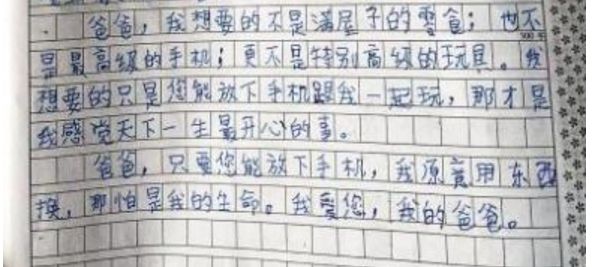 爸爸，我想要的不是满屋子的零食；也不
是最高级的手机；更不是特别高级的玩具。我
想要的只是您能放下手机跟我一起玩，那才是
我感觉天下一生最开心的事。
爸爸，只要您能放下手机，我原意用东西
换，那怕是我的生命。我爱您，我的爸爸。